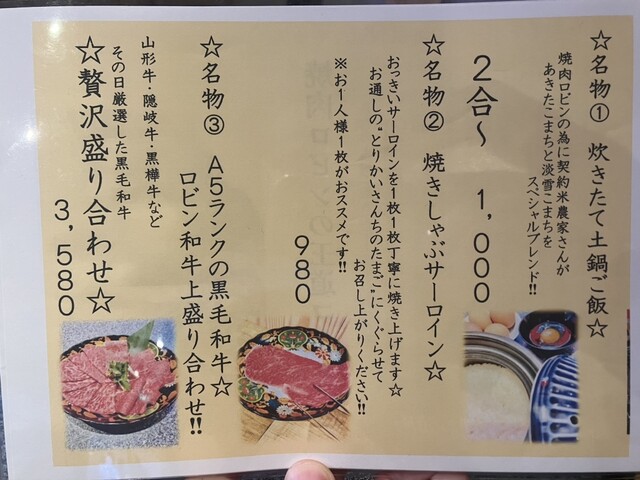 ☆名物① 炊きたて土鍋ご飯☆
焼肉ロビンの為に契約米農家さんが
あきたこまちと淡雪こまちを
スペシャルブレンド!!
2合〜 1,000
☆名物② 焼きしゃぶサーロイン☆
おっきいサーロインを1枚1枚丁寧に焼き上げます☆
お通しの“とりかいさんちのたまご”にくぐらせて
お召し上がりください!!
※お1人様1枚がおススメです!!
980
☆名物③ A5ランクの黒毛和牛☆
ロビン和牛上盛り合わせ!!
山形牛・隠岐牛・黒樺牛など
その日厳選した黒毛和牛
☆贅沢盛り合わせ☆
3,580